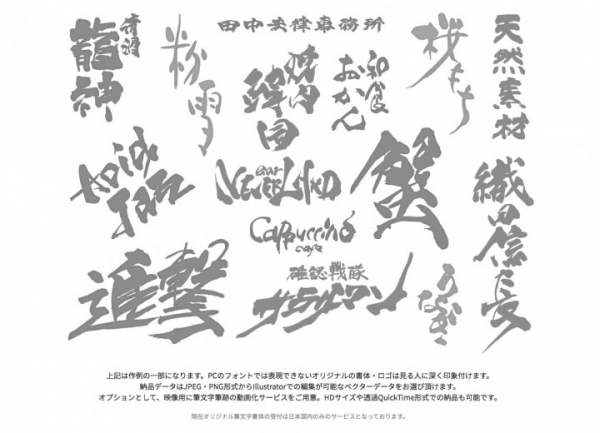 青海
龍神
粉雪
田中法律事務所
焼肉
韓国
和食
おかん
桜もち
天然素材
Acid
Jazz
BAR
NEVERLAND
Cappuccino
cafe
蟹
織田信長
進撃
確認戦隊
うなぎ
上記は作例の一部になります。PCのフォントでは表現できないオリジナルの書体・ロゴは見る人に深く印象付けます。
納品データはJPEG・PNG形式からIllustratorでの編集が可能なベクターデータをお選び頂けます。
オプションとして、映像用に筆文字筆跡の動画化サービスをご用意。HDサイズや透過QuickTime形式での納品も可能です。
現在オリジナル筆文字書体の受付は日本国内のみのサービスとなっております。